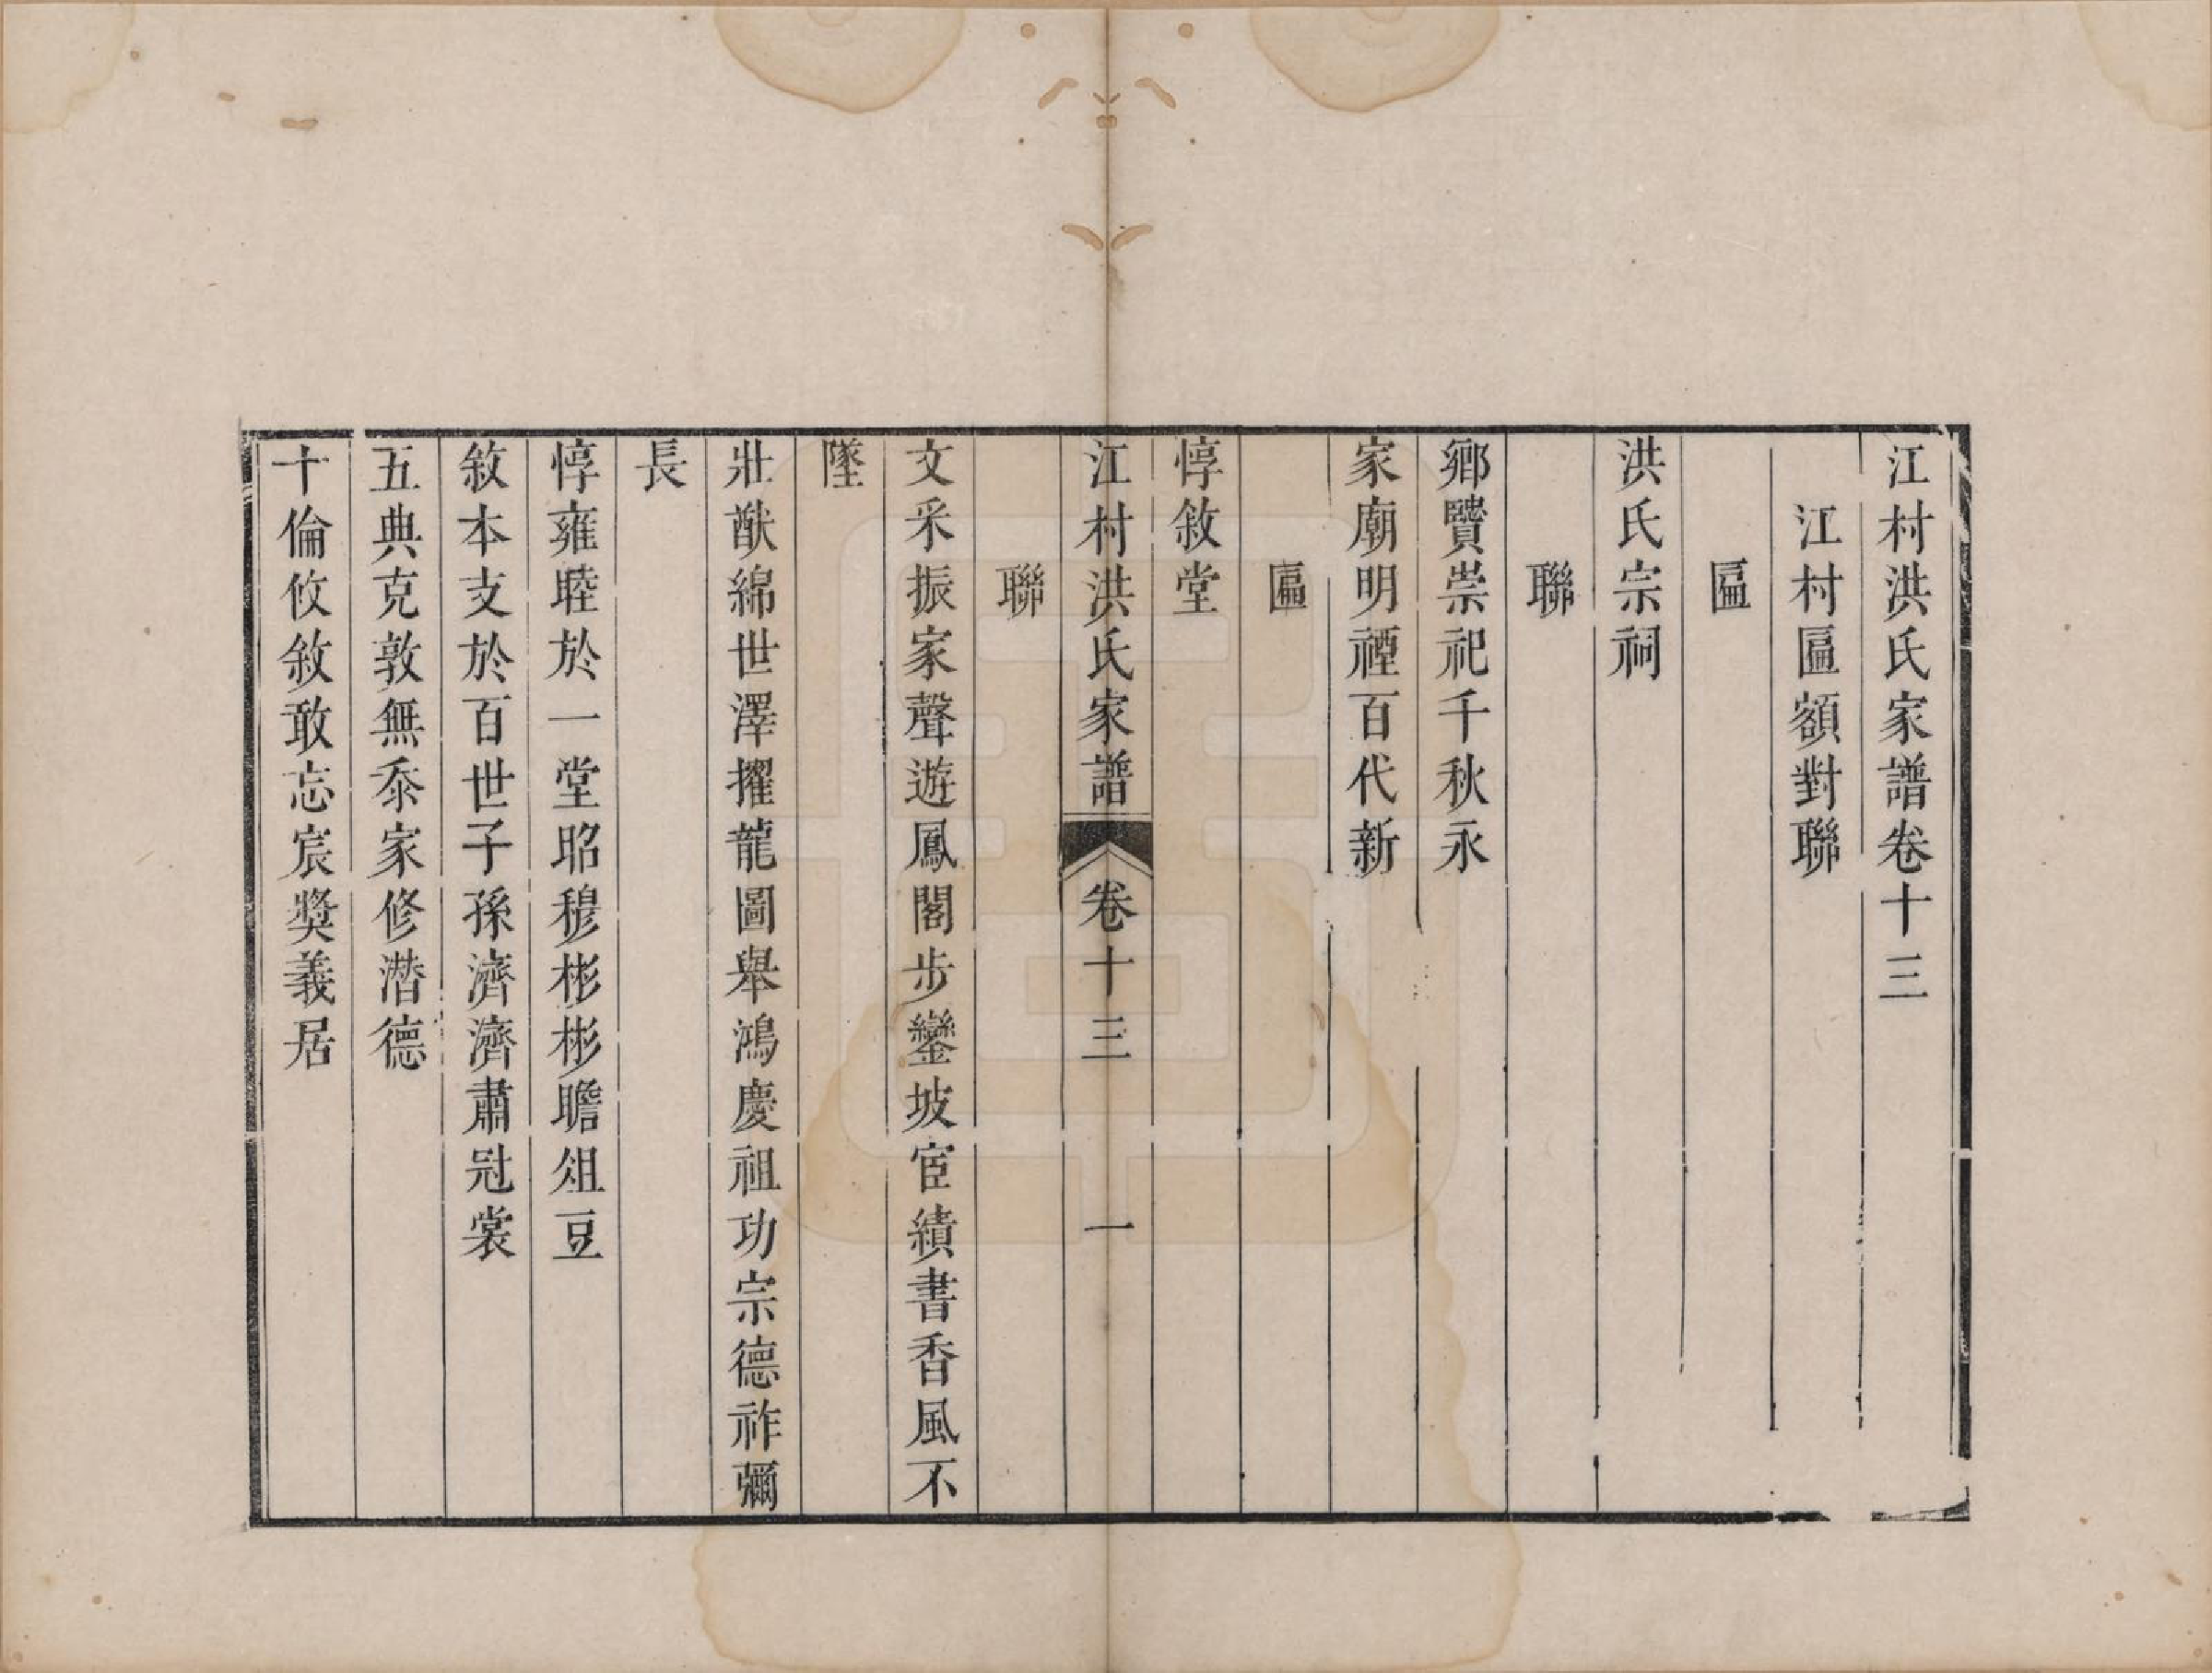 江村洪氏家譜卷十三
江村匾額對聯
匾
洪氏宗祠
聯
鄉賢崇祀千秋永
家廟明禋百代新
匾
惇敘堂
江村洪氏家譜 卷十三 一
聯
文采振家聲遊鳳閣步鑾坡宦績書香風不
墜
壯猷綿世澤擢龍圖舉鴻慶祖功宗德祚彌
長
惇雍睦於一堂昭穆彬彬瞻俎豆
敘本支於百世子孫濟濟肅冠裳
五典克敦無忝家修潛德
十倫攸敘敢忘宸獎義居